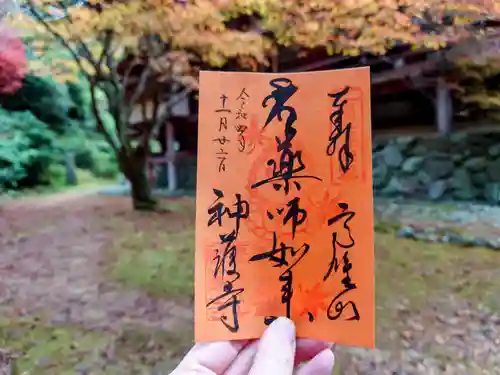 奉拝
高雄山
薬師如来
神護寺
令和四年
十一月廿日